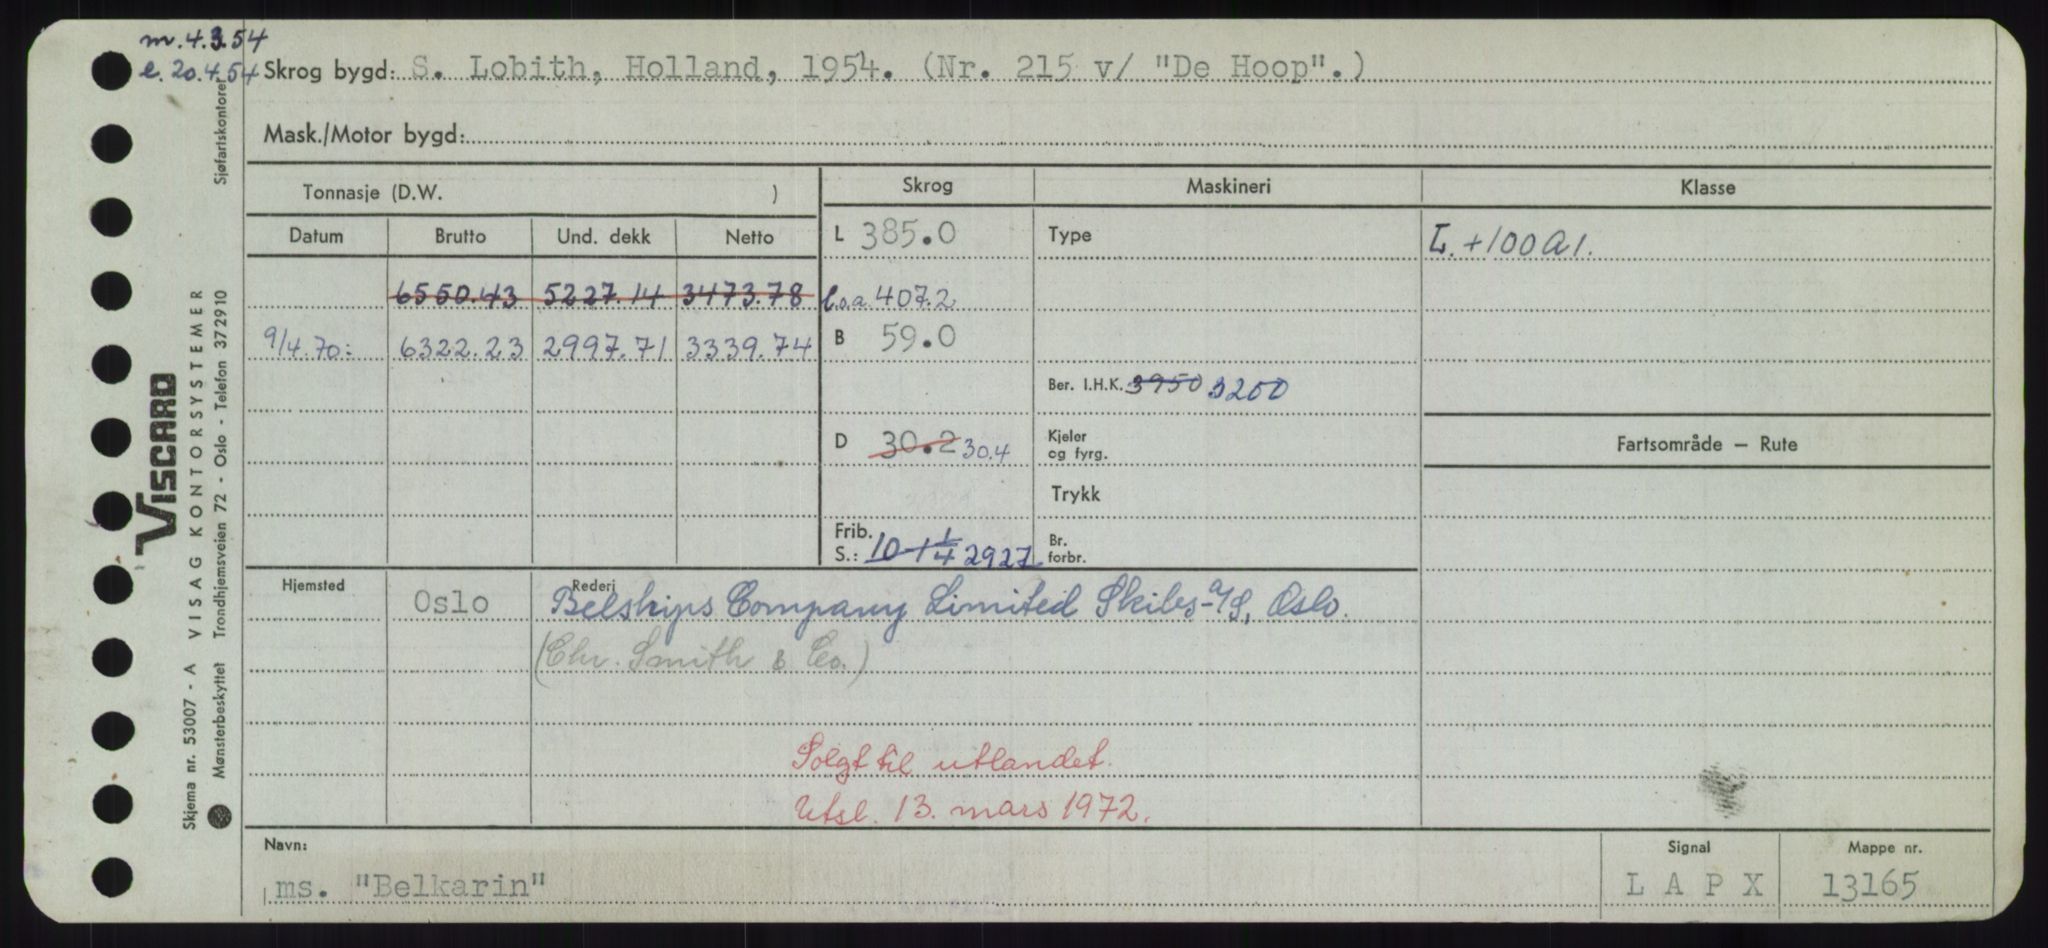 m. 4.3.54
e. 20.4.54
Skrog bygd: S. Lobith, Holland, 1954. (Nr. 215 v/ "De Hoop".)
Mask./Motor bygd:
Tonnasje (D.W. )
Skrog
Maskineri
Klasse
Datum Brutto Und. dekk Netto
L 385.0
Type
L. +100 A 1.
6550.43 5227.14 3473.78
l.o.a. 407.2
9/4.70: 6322.23 2997.71 3339.74
B 59.0
Ber. I.H.K. 3950 3200
D 30.2 30.4
Kjeler
og fyrg.
Fartsområde — Rute
Trykk
Frib.
S.: 10-1 1/4 2927
Br.
forbr.
Hjemsted Oslo
Rederi
Belships Company Limited Skibs-A/S, Oslo.
(Chr. Smith & Co.)
Solgt til utlandet.
Utsl. 13. mars 1972.
Navn:
ms. "Belkarin"
Signal
L A P X
Mappe nr.
13165
Skjema nr. 53007 - A VISAG KONTORSYSTEMER
VISCARD
Mønsterbeskyttet Trondhjemsveien 72 - Oslo - Telefon 372910
Sjøfartskontoret